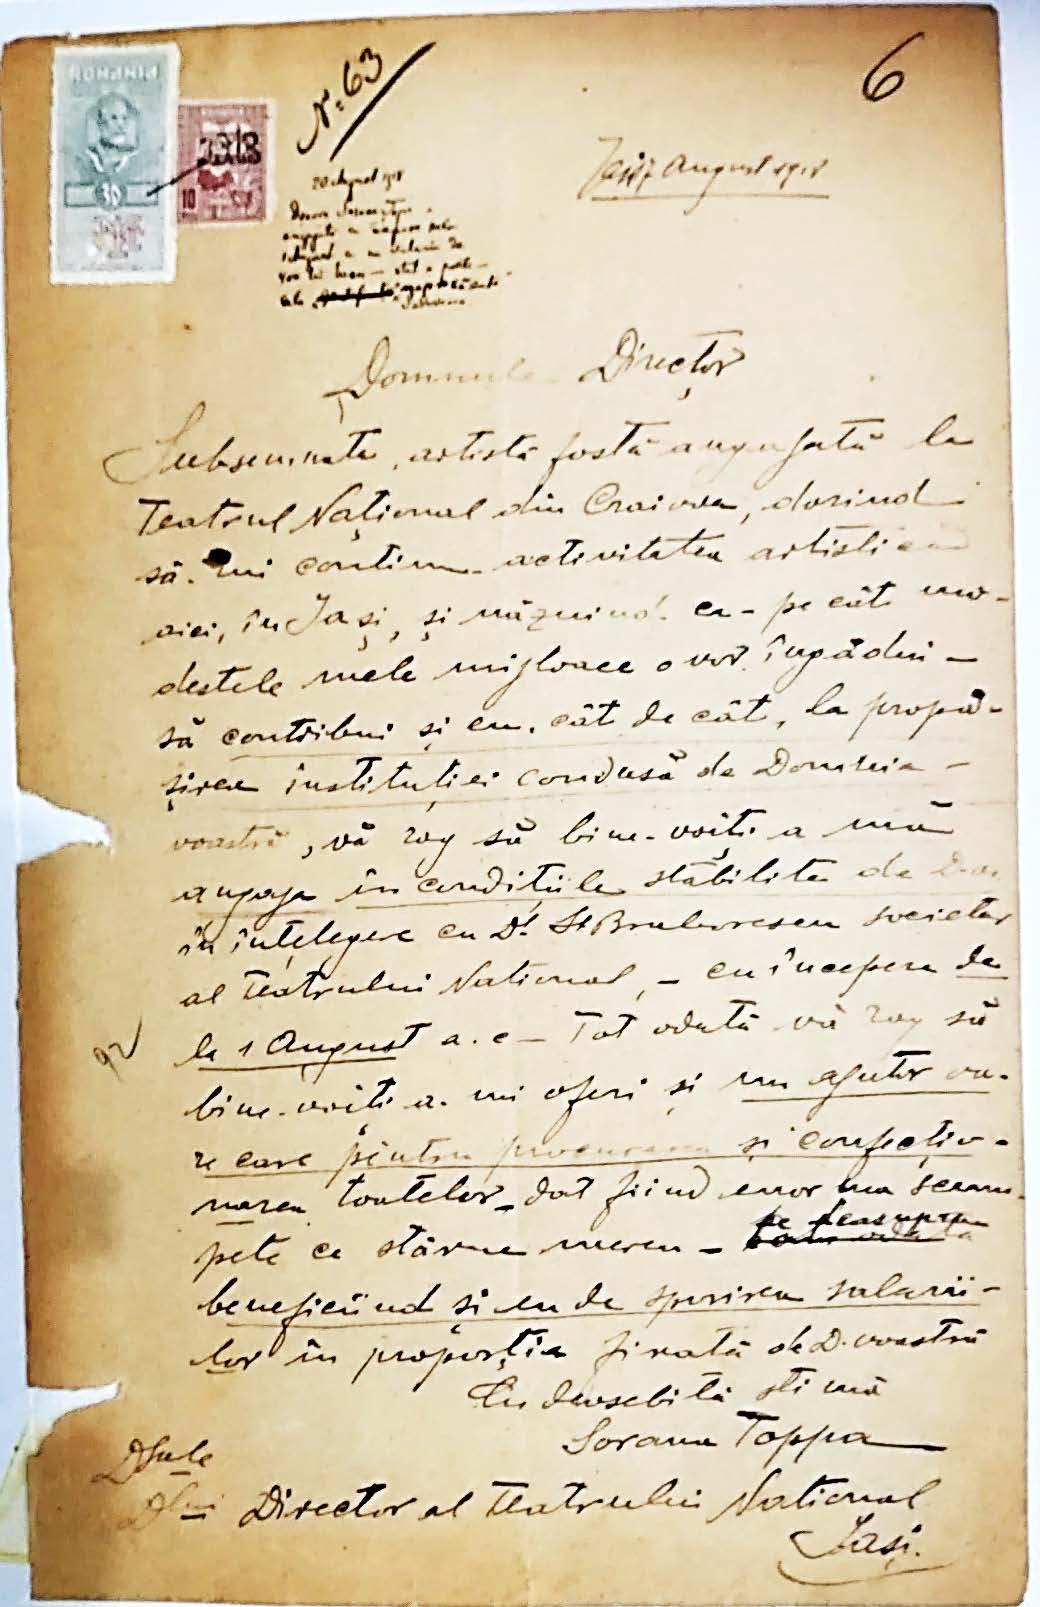 ROMANIA
30
1918
10
No. 63
6
Iași 7 August 1918
20 August 1918
Domnule Director
Subsemnata, artistă fostă angajată la
Teatrul Național din Craiova, dorind
să-mi continu activitatea artistică
aici, în Iași, și năzuind ca – pe cât mo-
destele mele mijloace o vor îngădui –
să contribui și eu, cât de cât, la propă-
șirea instituției condusă de Domnia-
voastră, vă rog să bine-voiți a mă
angaja în condițiile stabilite de D-vs.
în înțelegere cu Dl. St Braborescu societar
al Teatrului National, – cu începere de
la 1 August a.c – Tot odată vă rog să
bine-voiți a-mi oferi și un ajutor oa-
re care pentru procurarea și confecțio-
narea toatelor – dat fiind enorma scum-
pete ce stărue mereu – pe deasupra
beneficiind și eu de sporirea salarii-
lor în proporția fixată de D-voastră
Cu deosebită stimă
Sorana Țoppa
DSale
Dlui Director al Teatrului National
Iași.